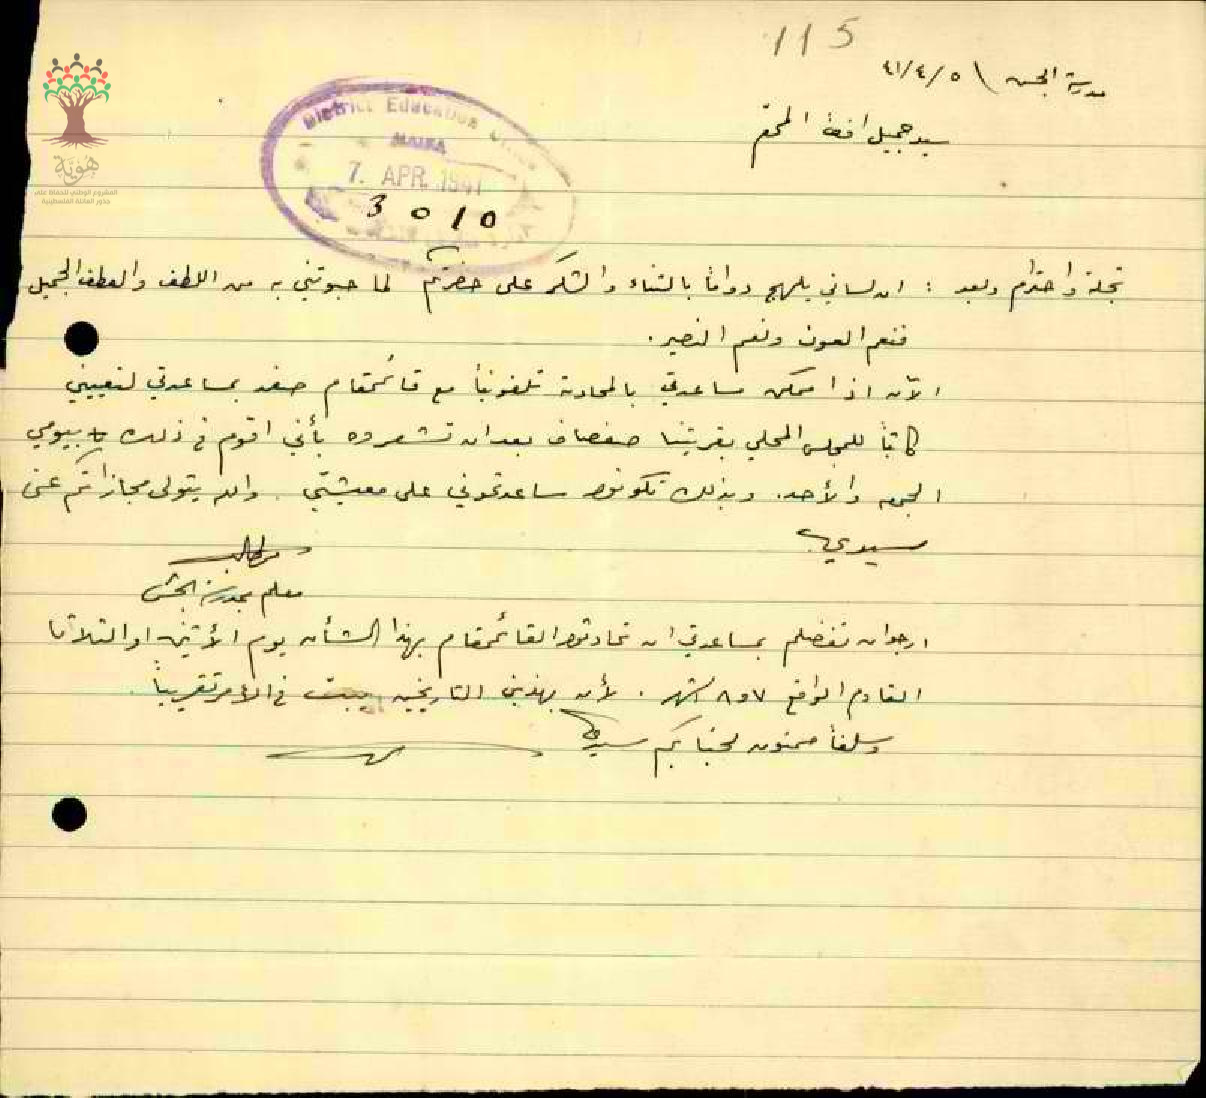 115
مدرسة الجش \ ٤١/٤/٥
سيد جميل افندي المحترم
District Education Office
HAIFA
7. APR. 1941
3 ٥/٥
هُوِيَّة
المشروع الوطني للحفاظ على
جذور العائلة الفلسطينية
تجلة واحترام وبعد : ان لساني يلهج دواماً بالثناء والشكر على حضرتكم لما حبوتني به من اللطف والعطف الجميل
فنعم العون ونعم النصير.
الآن اذا ممكن مساعدتي بالمحادثة تلفونياً مع قائمقام صفد بمساعدتي لتعييني
كاتباً للمجلس المحلي بقريتنا صفصاف بعد ان تشعروه بأني اقوم في ذلك بيومي
الجمعه والأحد. وبذلك تكونوا ساعدتموني على معيشتي. والله يتولى مجازاتكم عني
سيدي
معلم بمدرسة الجش
ارجو ان تفضلتم بمساعدتي ان تحادثوا القائمقام بهذا الشأن يوم الأثنين او الثلاثا
القادم الواقع ٧ و٨ شهر. لأن بهذين التاريخين يبت في الأمر تقريباً.
وسلفاً ممنون لجنابكم سيدي